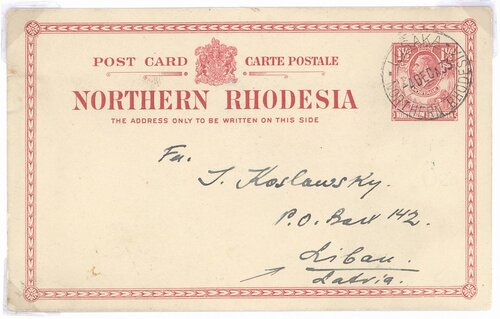 POST CARD CARTE POSTALE
NORTHERN RHODESIA
THE ADDRESS ONLY TO BE WRITTEN ON THIS SIDE
LUSAKA
NORTHERN RHODESIA
Fa.
J. Koslowsky.
P.O. Box 142.
Liban.
Latvia.